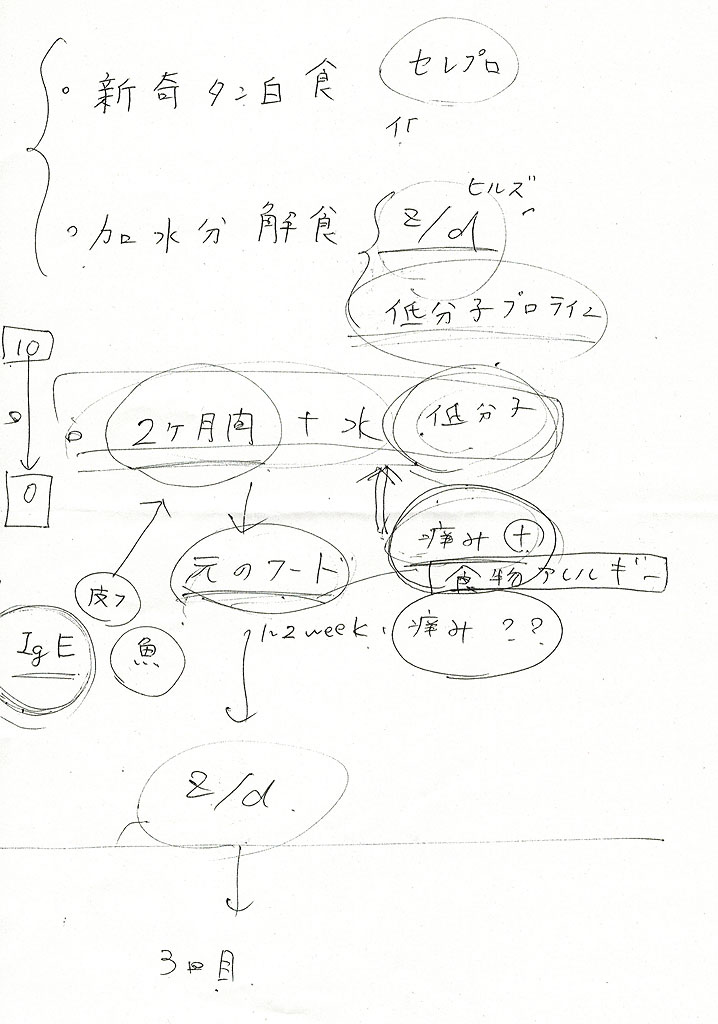 セレプロ
新奇タン白食
ヒルズ
加水分解食
z/d
低分子プロテイン
10
0
2ヶ月間 + 水 低分子
痛み +
元のフード
食物アレルギー
皮フ
1~2 week
痛み ??
IgE
魚
z/d
3回目